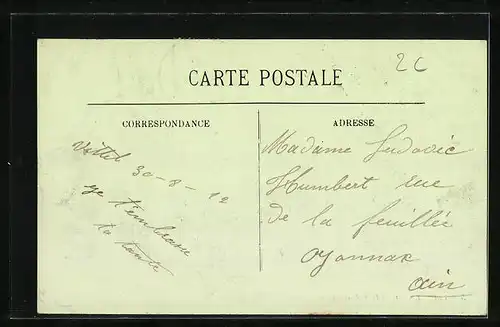 2C
CARTE POSTALE
CORRESPONDANCE
Vittel
30-8-12
je t'embrasse
ta tante
ADRESSE
Madame Ludovic
Humbert rue
de la feuillée
Oyonnax
Ain